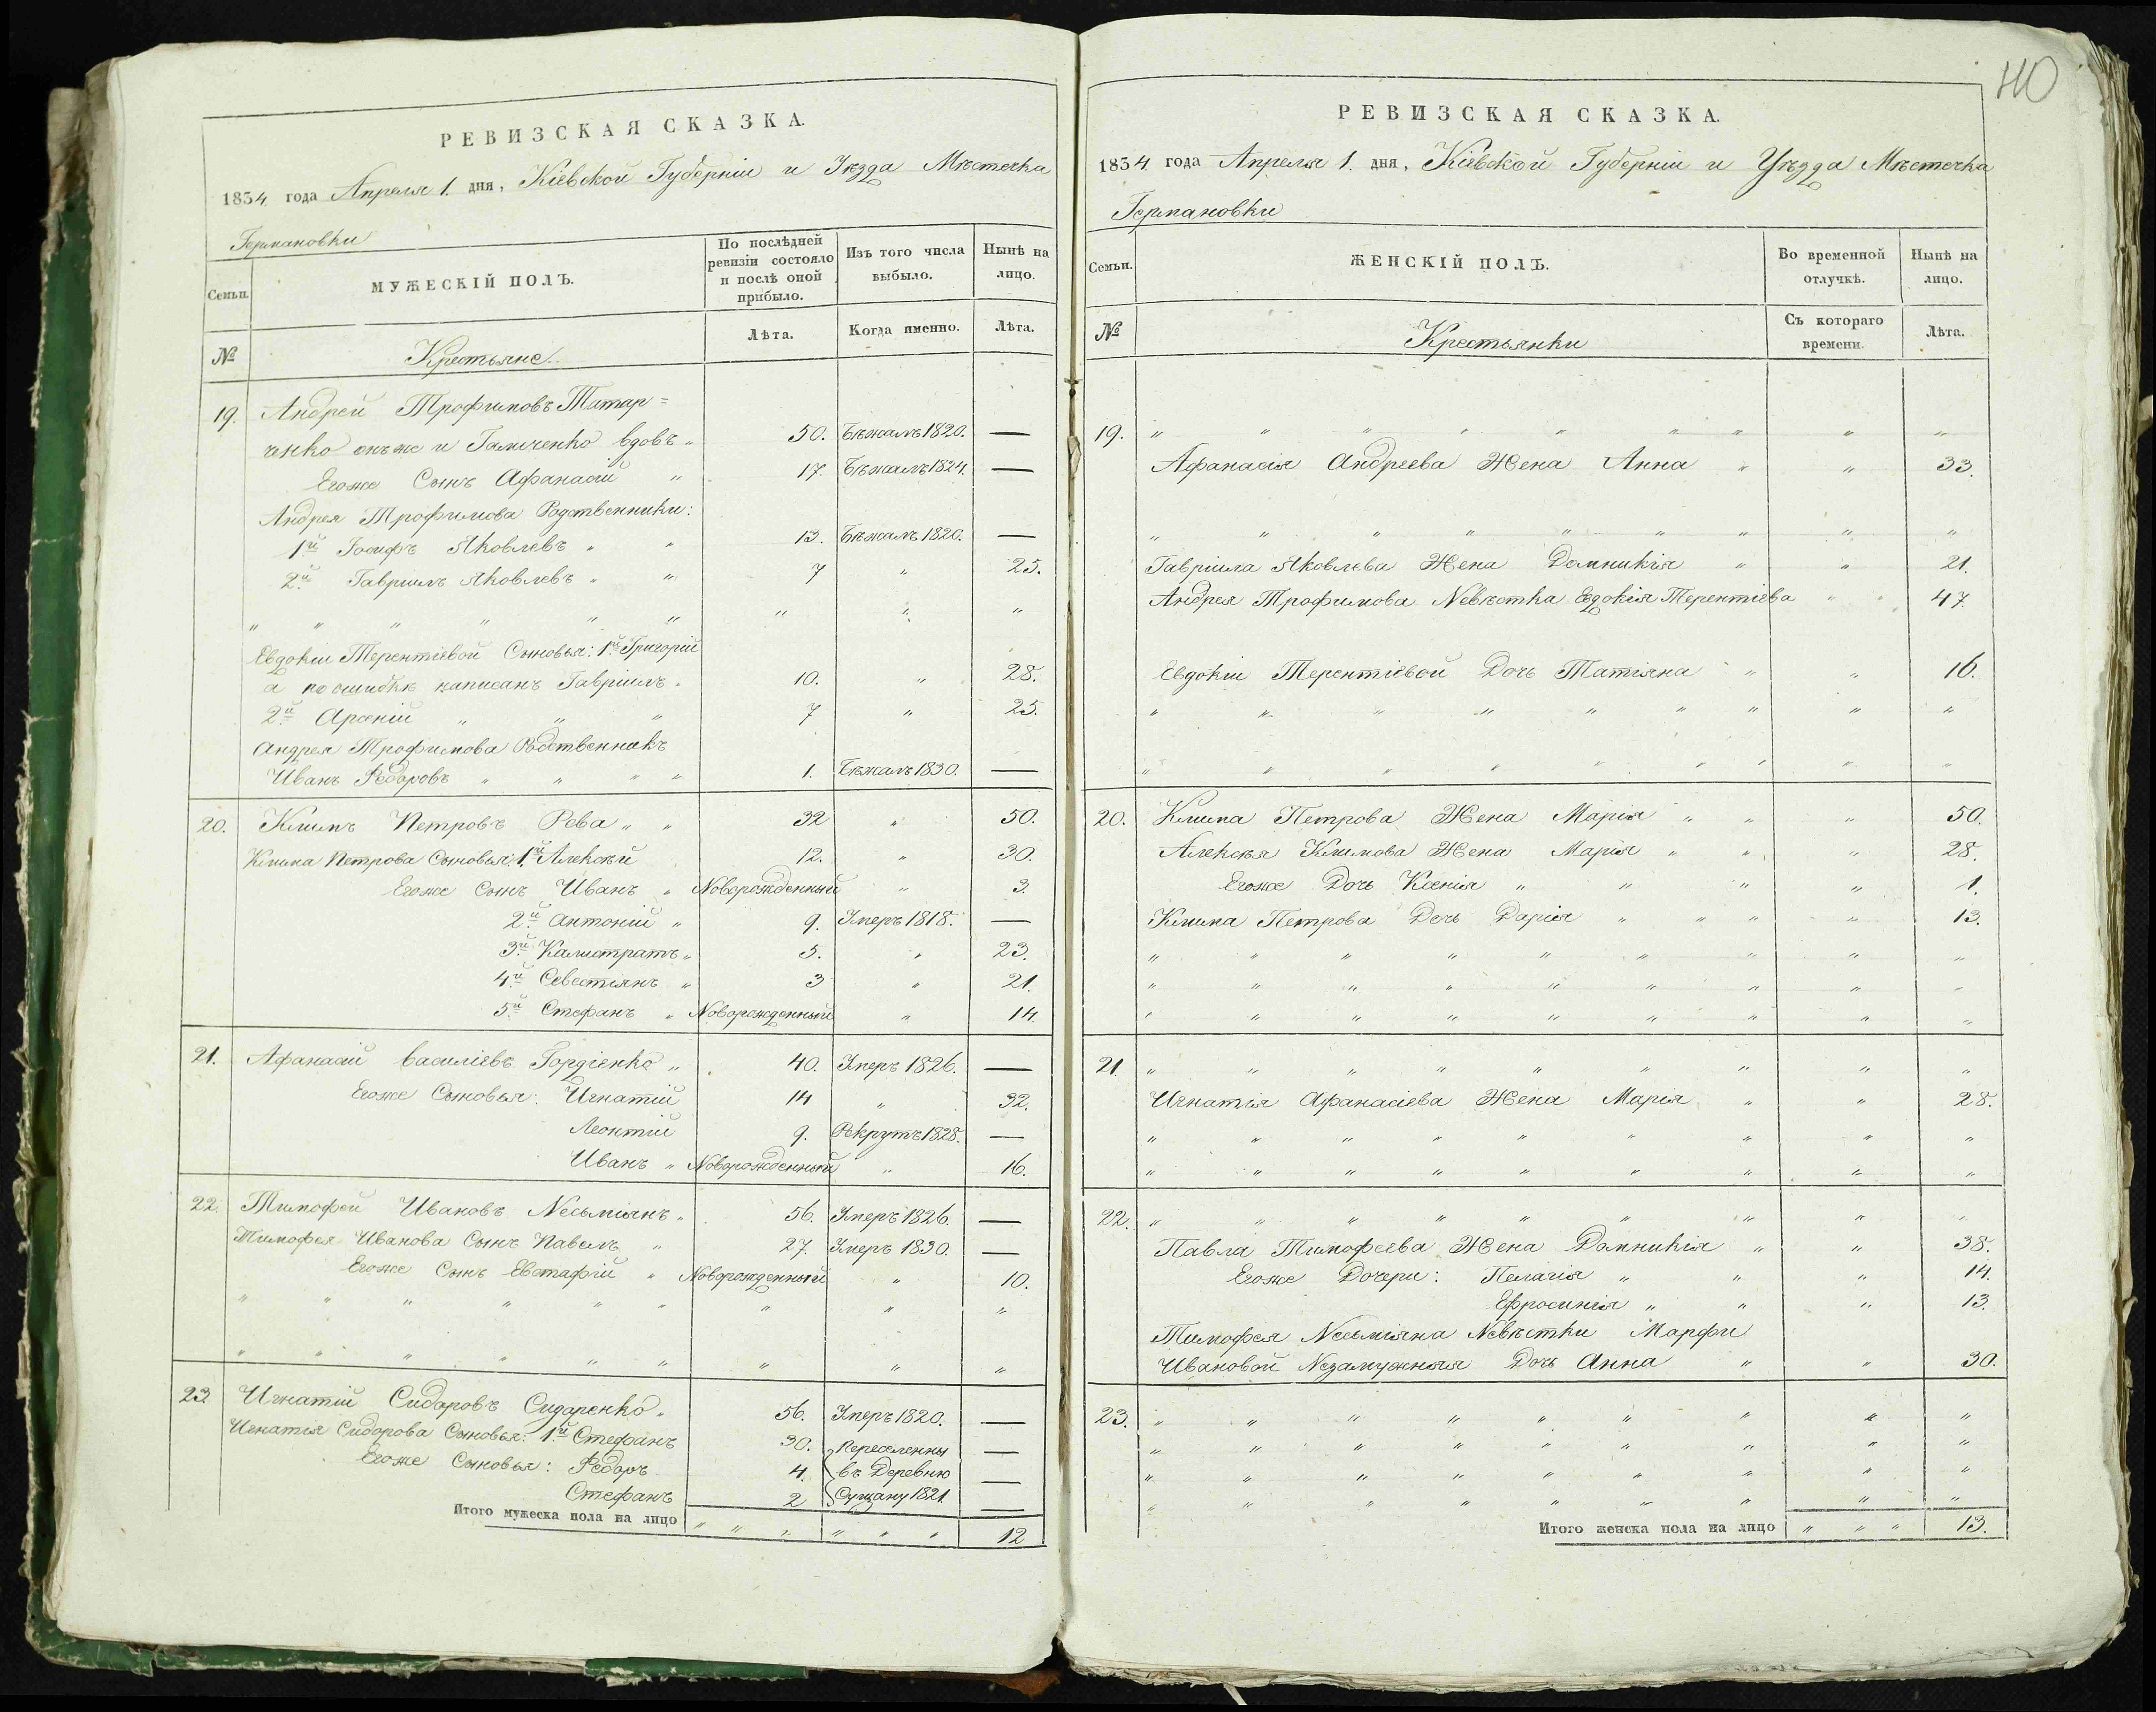 РЕВИЗСКАЯ СКАЗКА.
1834 года Апреля 1. дня, Кіевской Губерніи и Уѣзда Мѣстечка
Германовки
Семьи.
МУЖЕСКІЙ ПОЛЪ.
По послѣдней ревизіи состояло и послѣ оной прибыло.
Изъ того числа выбыло.
Нынѣ на лицо.
№
Крестьяне.
Лѣта.
Когда именно.
Лѣта.
19. Андрей Трофимовъ Татар=
ченко онъ же и Галиченко вдовъ " 50. Бѣжалъ 1820. —
Егоже Сынъ Афанасій " 17. Бѣжалъ 1824. —
Андрея Трофимова Родственники:
1й Іосифъ Яковлевъ " " 13. Бѣжалъ 1820. —
2й Гавріилъ Яковлевъ " " 7 " 25.
" " " " " " " " "
Евдокіи Терентіевой Сыновья: 1й Григорій
а по ошибкѣ написанъ Гавріилъ " 10. " 28.
2й Арсеній " " " 7 " 25.
Андрея Трофимова Родственникъ
Иванъ Федоровъ " " " " 1. Бѣжалъ 1830. —
20. Климъ Петровъ Рева " " 32 " 50.
Клима Петрова Сыновья: 1й Алексѣй 12. " 30.
Егоже Сынъ Иванъ " Новорожденный " 3.
2й Антоній " 9. Умеръ 1818. —
3й Калистратъ " 5. " 23.
4й Севестіянъ " 3 " 21.
5й Стефанъ " Новорожденный " 14.
21. Афанасій Василіевъ Гордіенко " 40. Умеръ 1826. —
Егоже Сыновья: Игнатій 14 " 32.
Леонтій 9. Рекрутъ 1828. —
Иванъ " Новорожденный " 16.
22. Тимофей Ивановъ Несміянъ " 56. Умеръ 1826. —
Тимофея Иванова Сынъ Павелъ " 27. Умеръ 1830. —
Егоже Сынъ Евстафій " Новорожденный " 10.
" " " " " " " " "
" " " " " " " " "
23 Игнатій Сидоровъ Сидаренко " 56. Умеръ 1820. —
Игнатія Сидорова Сыновья: 1й Стефанъ 30. Переселенны —
Егоже Сыновья: Федоръ 4. въ Деревню —
Стефанъ 2 Сущану 1821. —
Итого мужеска пола на лицо " " " " " " 12
110
РЕВИЗСКАЯ СКАЗКА.
1834 года Апреля 1. дня, Кіевской Губерніи и Уѣзда Мѣстечка
Германовки
Семьи.
ЖЕНСКІЙ ПОЛЪ.
Во временной отлучкѣ.
Нынѣ на лицо.
№
Крестьянки
Съ котораго времени.
Лѣта.
19. " " " " " " " " "
Афанасія Андреева Жена Анна " " 33.
" " " " " " " " "
Гавріила Яковлева Жена Домникія " " 21.
Андрея Трофимова Невѣстка Евдокія Терентіева " " 47
Евдокіи Терентіевой Дочь Татіяна " " 16.
" " " " " " " " "
" " " " " " " " "
20. Клима Петрова Жена Марія " " " 50.
Алексѣя Климова Жена Марія " " " 28.
Егоже Дочь Ксенія " " " " 1.
Клима Петрова Дочь Дарія " " " " 13.
" " " " " " " " "
" " " " " " " " "
" " " " " " " " "
21. " " " " " " " " "
Игнатія Афанасіева Жена Марія " " 28.
" " " " " " " " "
" " " " " " " " "
22. " " " " " " " " "
Павла Тимофеева Жена Домникія " " 38.
Егоже Дочери: Пелагія " " " 14.
Ефросинія " " " 13.
Тимофея Несміяна Невѣстки Марфи
Ивановой Незамужняя Дочь Анна " " 30.
23. " " " " " " " " "
" " " " " " " " "
" " " " " " " " "
" " " " " " " " "
Итого женска пола на лицо " " " 13.